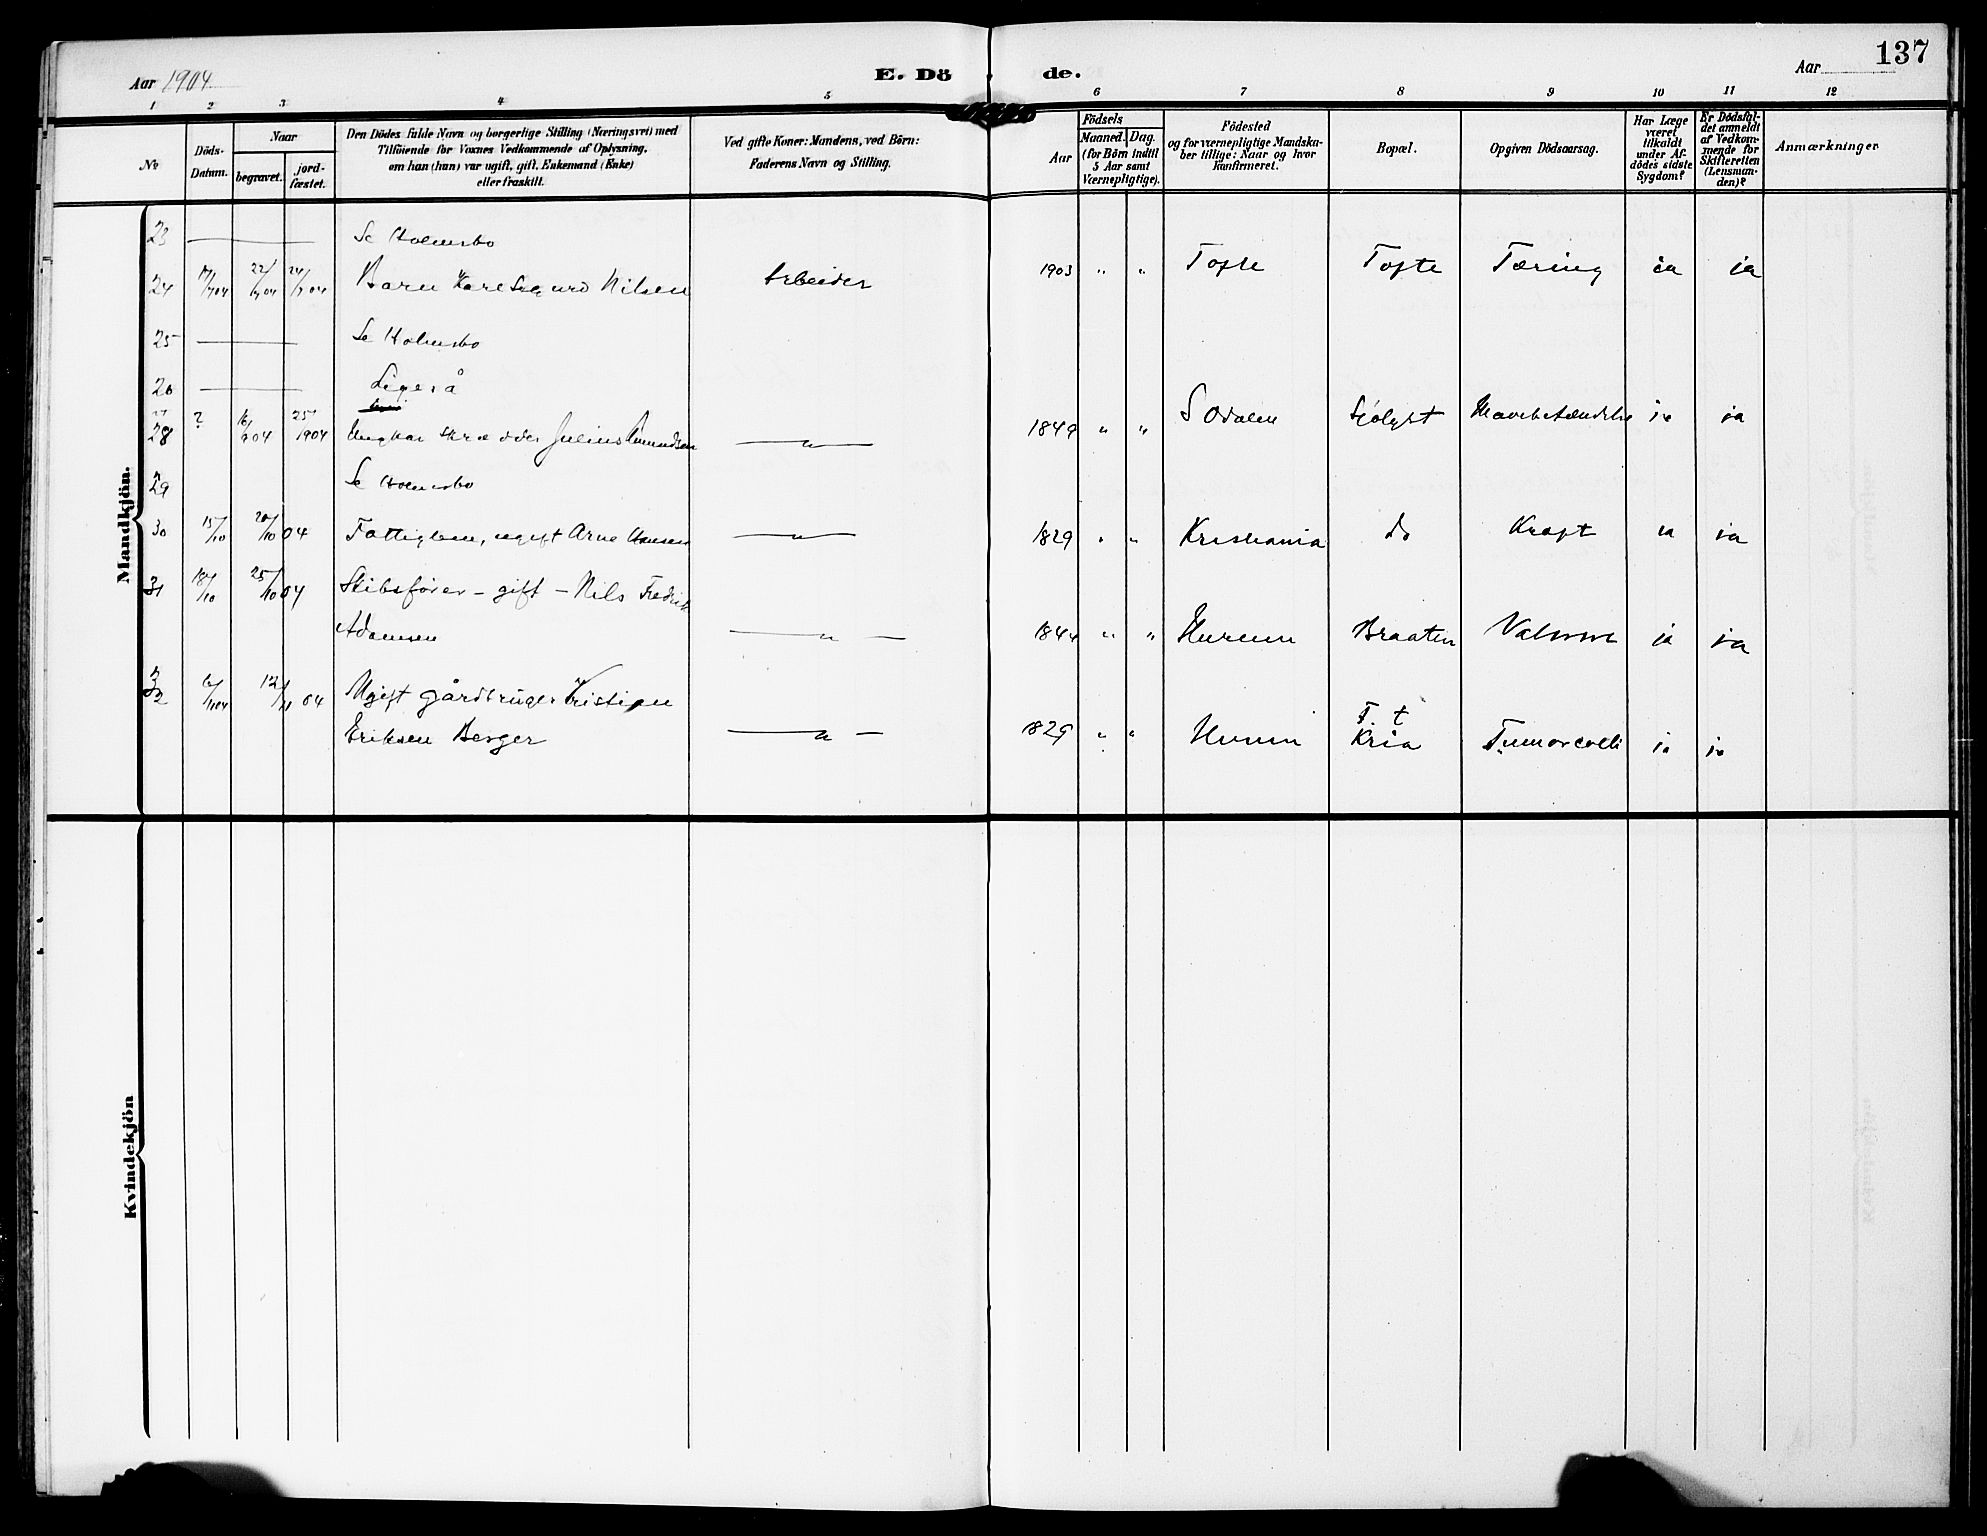 137
Aar 1904 E. Dö de. Aar
1 2 3 4 5 6 7 8 9 10 11 12
No
Döds-Datum.
Naar
begravet.
jord-fæstet.
Den Dödes fulde Navn og borgerlige Stilling (Næringsvei) med
Tilföiende for Voxnes Vedkommende af Oplysning,
om han (hun) var ugift, gift, Enkemand (Enke)
eller fraskilt.
Ved gifte Koner: Mandens, ved Börn:
Faderens Navn og Stilling.
Födsels
Aar
Maaned. Dag.
(for Börn indtil
5 Aar samt
Værnepligtige).
Födested
og for værnepligtige Mandska-
ber tillige: Naar og hvor
Konfirmeret.
Bopæl.
Opgiven Dödsaarsag.
Har Læge
været
tilkaldt
under Af-
dödes sidste
Sygdom?
Er Dödsfal-
det anmeldt
af Vedkom-
mende for
Skifteretten
(Lensman-
den)?
Anmærkninger
Mandkjön.
23 Se Holmsbo
24 17/7 04 22/7 04 24/7 04 Barn Kare Sigurd Nilsen Arbeider 1903 " " Tofte Tofte Tæring ja ja
25 Se Holmsbo
26 Ligeså
27
28 ? 16/9 04 25/ 1904 Ungkar Skrædder Julius Amundsen — " — 1849 " " S Odalen Sjölyst Mavebetændelse ja ja
29 Se Holmsbo
30 15/10 20/10 04 Fattiglem, ugift Arne Hansen — " — 1829 " " Kristiania do Kræft ja ja
31 18/10 25/10 04 Skibsförer – gift – Nils Fredrik
Adamsen — " — 1844 " " Hurum Braaten ja ja
32 6/11 04 12/11 04 Ugift gårdbruger Kristian
Eriksen Berger — " — 1829 " " Hurum F. t Kria Tumor colli ja ja
Kvindekjön